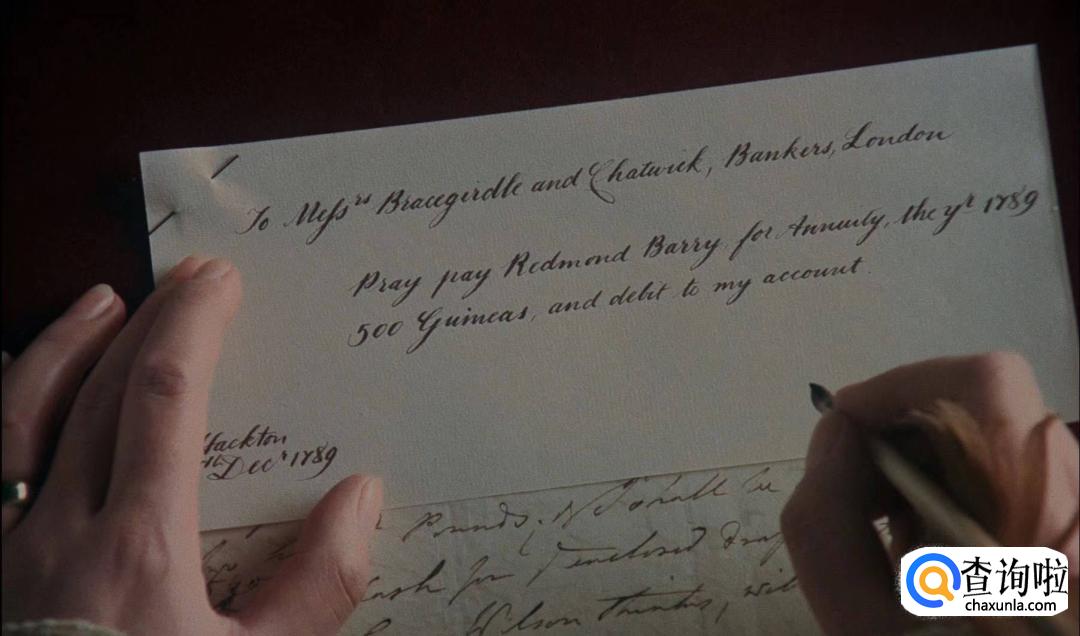 To Messrs Bracegirdle and Chatwick, Bankers, London
Pray pay Redmond Barry for Annuity, the yr 1789
500 Guineas, and debit to my account.
Hackton
Decr 1789
Pounds, & I shall be
cash for enclosed
Wilson thinks,
查询啦
chaxunla.com